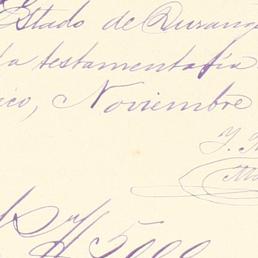 Estado de Durang
la testamentaria
ico, Noviembre
5000